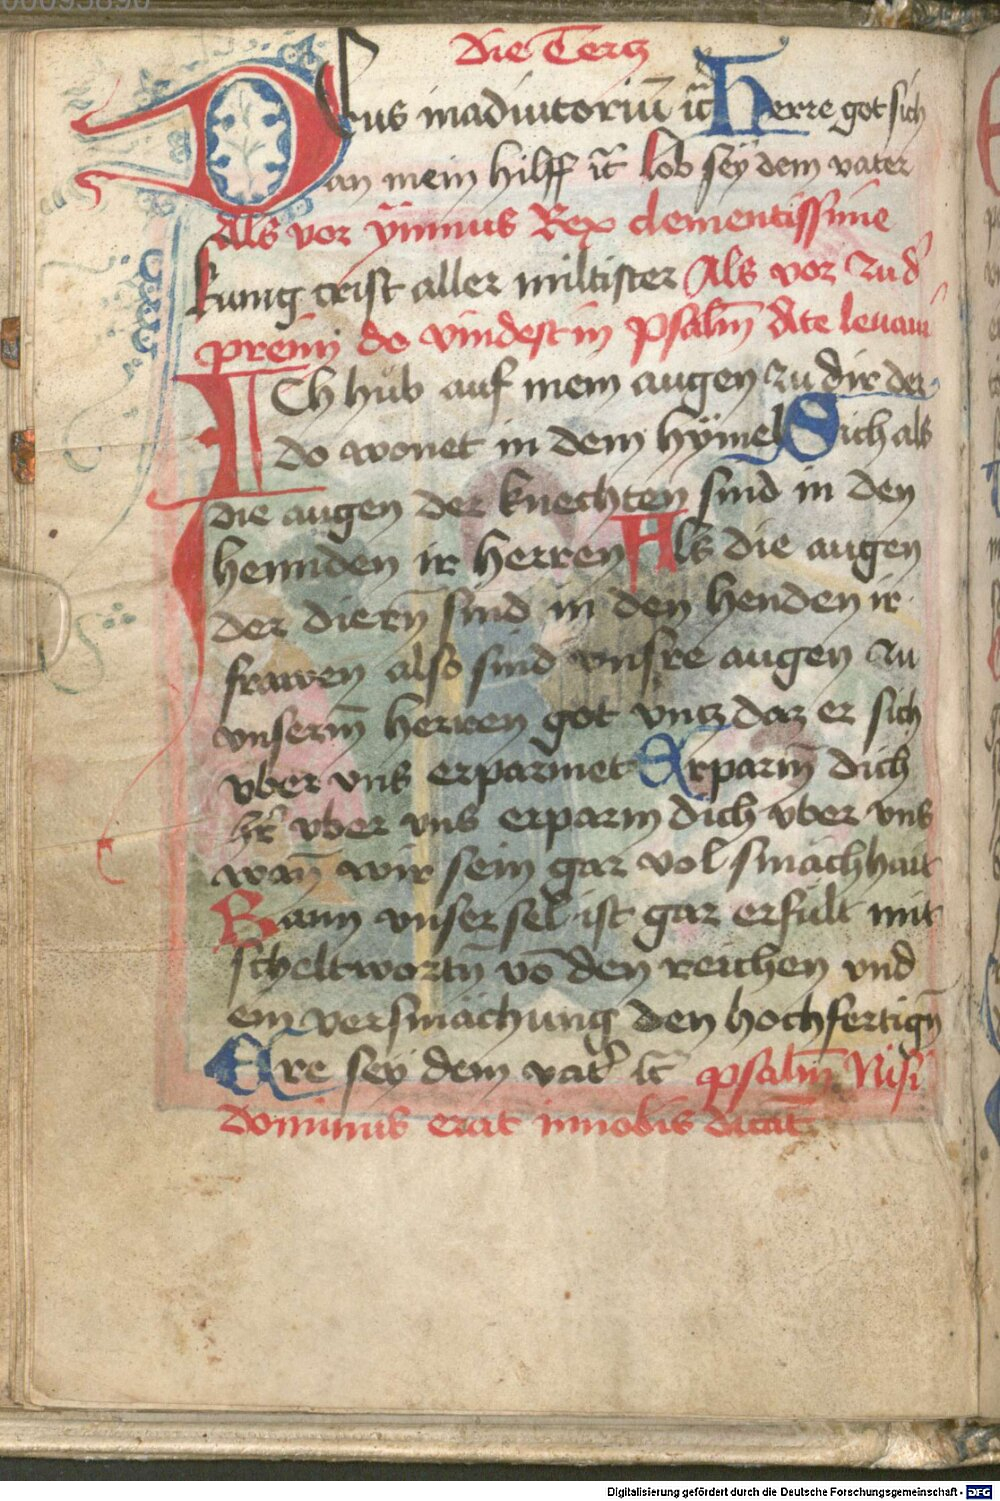 die Tercz
Deus inadiutoriū ꝛc̄ Herre got sich
an mein hilff ꝛc̄ Lob seÿ dem vater
Als vor ÿmnus Rex clementissime
kunig crist aller miltister Als vor zu d'
premi do vindest in psalm̄ Ad te leuaui
ICh hub auf mein augen zu dir der
do wonet in dem hÿmel Sich als
die augen der knechten sind in den
hennden ir herren Als die augen
der diern̄ sind in den henden ir
frawen also sind vnsre augen zu
vnserm̄ herren got vntz daz er sich
vber vns erparmet Erparm̄ dich
hr̄ vber vns erparm dich vber vns
wan̄ wir sein gar vol smachhait
Wann vnser sel ist gar erfult mit
scheltwortn̄ vō den reichen vnd
ein versmachung den hochfertign̄
Ere sey dem vat' ꝛc̄ psalm̄ Nisi
dominus erat in nobis dicat
Digitalisierung gefördert durch die Deutsche Forschungsgemeinschaft - DFG